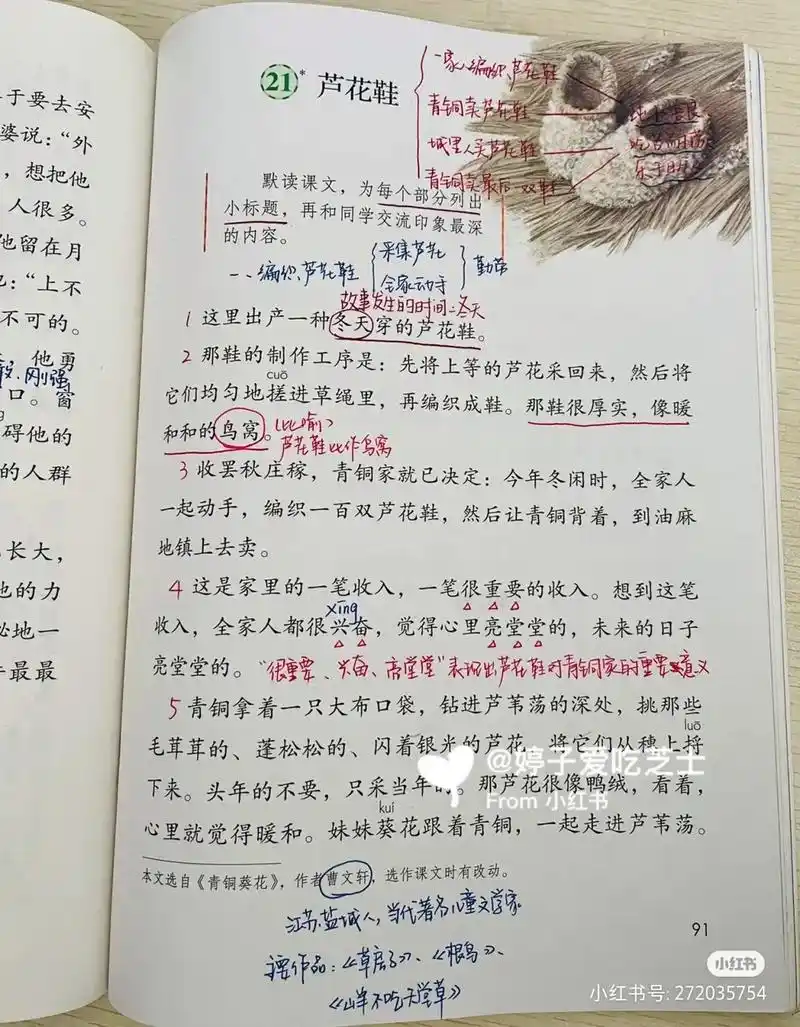 于要去安
婆说：“外
，想把他
人很多。
他留在月
己：“上不
不可的。
，他勇
敢、刚强
口。窗
碍他的
的人群
长大，
也的力
必地一
最最
21* 芦花鞋
一家人编织芦花鞋
青铜卖芦花鞋
城里人买芦花鞋
青铜卖最后一双鞋
默读课文，为每个部分列出
小标题，再和同学交流印象最深
的内容。
一、编织芦花鞋 采集芦花 全家动手 勤劳
故事发生的时间：冬天
1 这里出产一种冬天穿的芦花鞋。
2 那鞋的制作工序是：先将上等的芦花采回来，然后将
cuō
它们均匀地搓进草绳里，再编织成鞋。那鞋很厚实，像暖
和和的鸟窝。（比喻）
芦花鞋比作鸟窝
3 收罢秋庄稼，青铜家就已决定：今年冬闲时，全家人
一起动手，编织一百双芦花鞋，然后让青铜背着，到油麻
地镇上去卖。
4 这是家里的一笔收入，一笔很重要的收入。想到这笔
xīng
收入，全家人都很兴奋，觉得心里亮堂堂的，未来的日子
亮堂堂的。“很重要、兴奋、亮堂堂”表现出芦花鞋对青铜家的重要意义
5 青铜拿着一只大布口袋，钻进芦苇荡的深处，挑那些
luō
毛茸茸的、蓬松松的、闪着银光的芦花，将它们从穗上捋
下来。头年的不要，只采当年的。那芦花很像鸭绒，看着，
kuí
心里就觉得暖和。妹妹葵花跟着青铜，一起走进芦苇荡。
@婷子爱吃芝士
From 小红书
本文选自《青铜葵花》，作者曹文轩，选作课文时有改动。
江苏盐城人，当代著名儿童文学家
主要作品：《草房子》、《根鸟》、
《山羊不吃天堂草》
91
小红书
小红书号：272035754